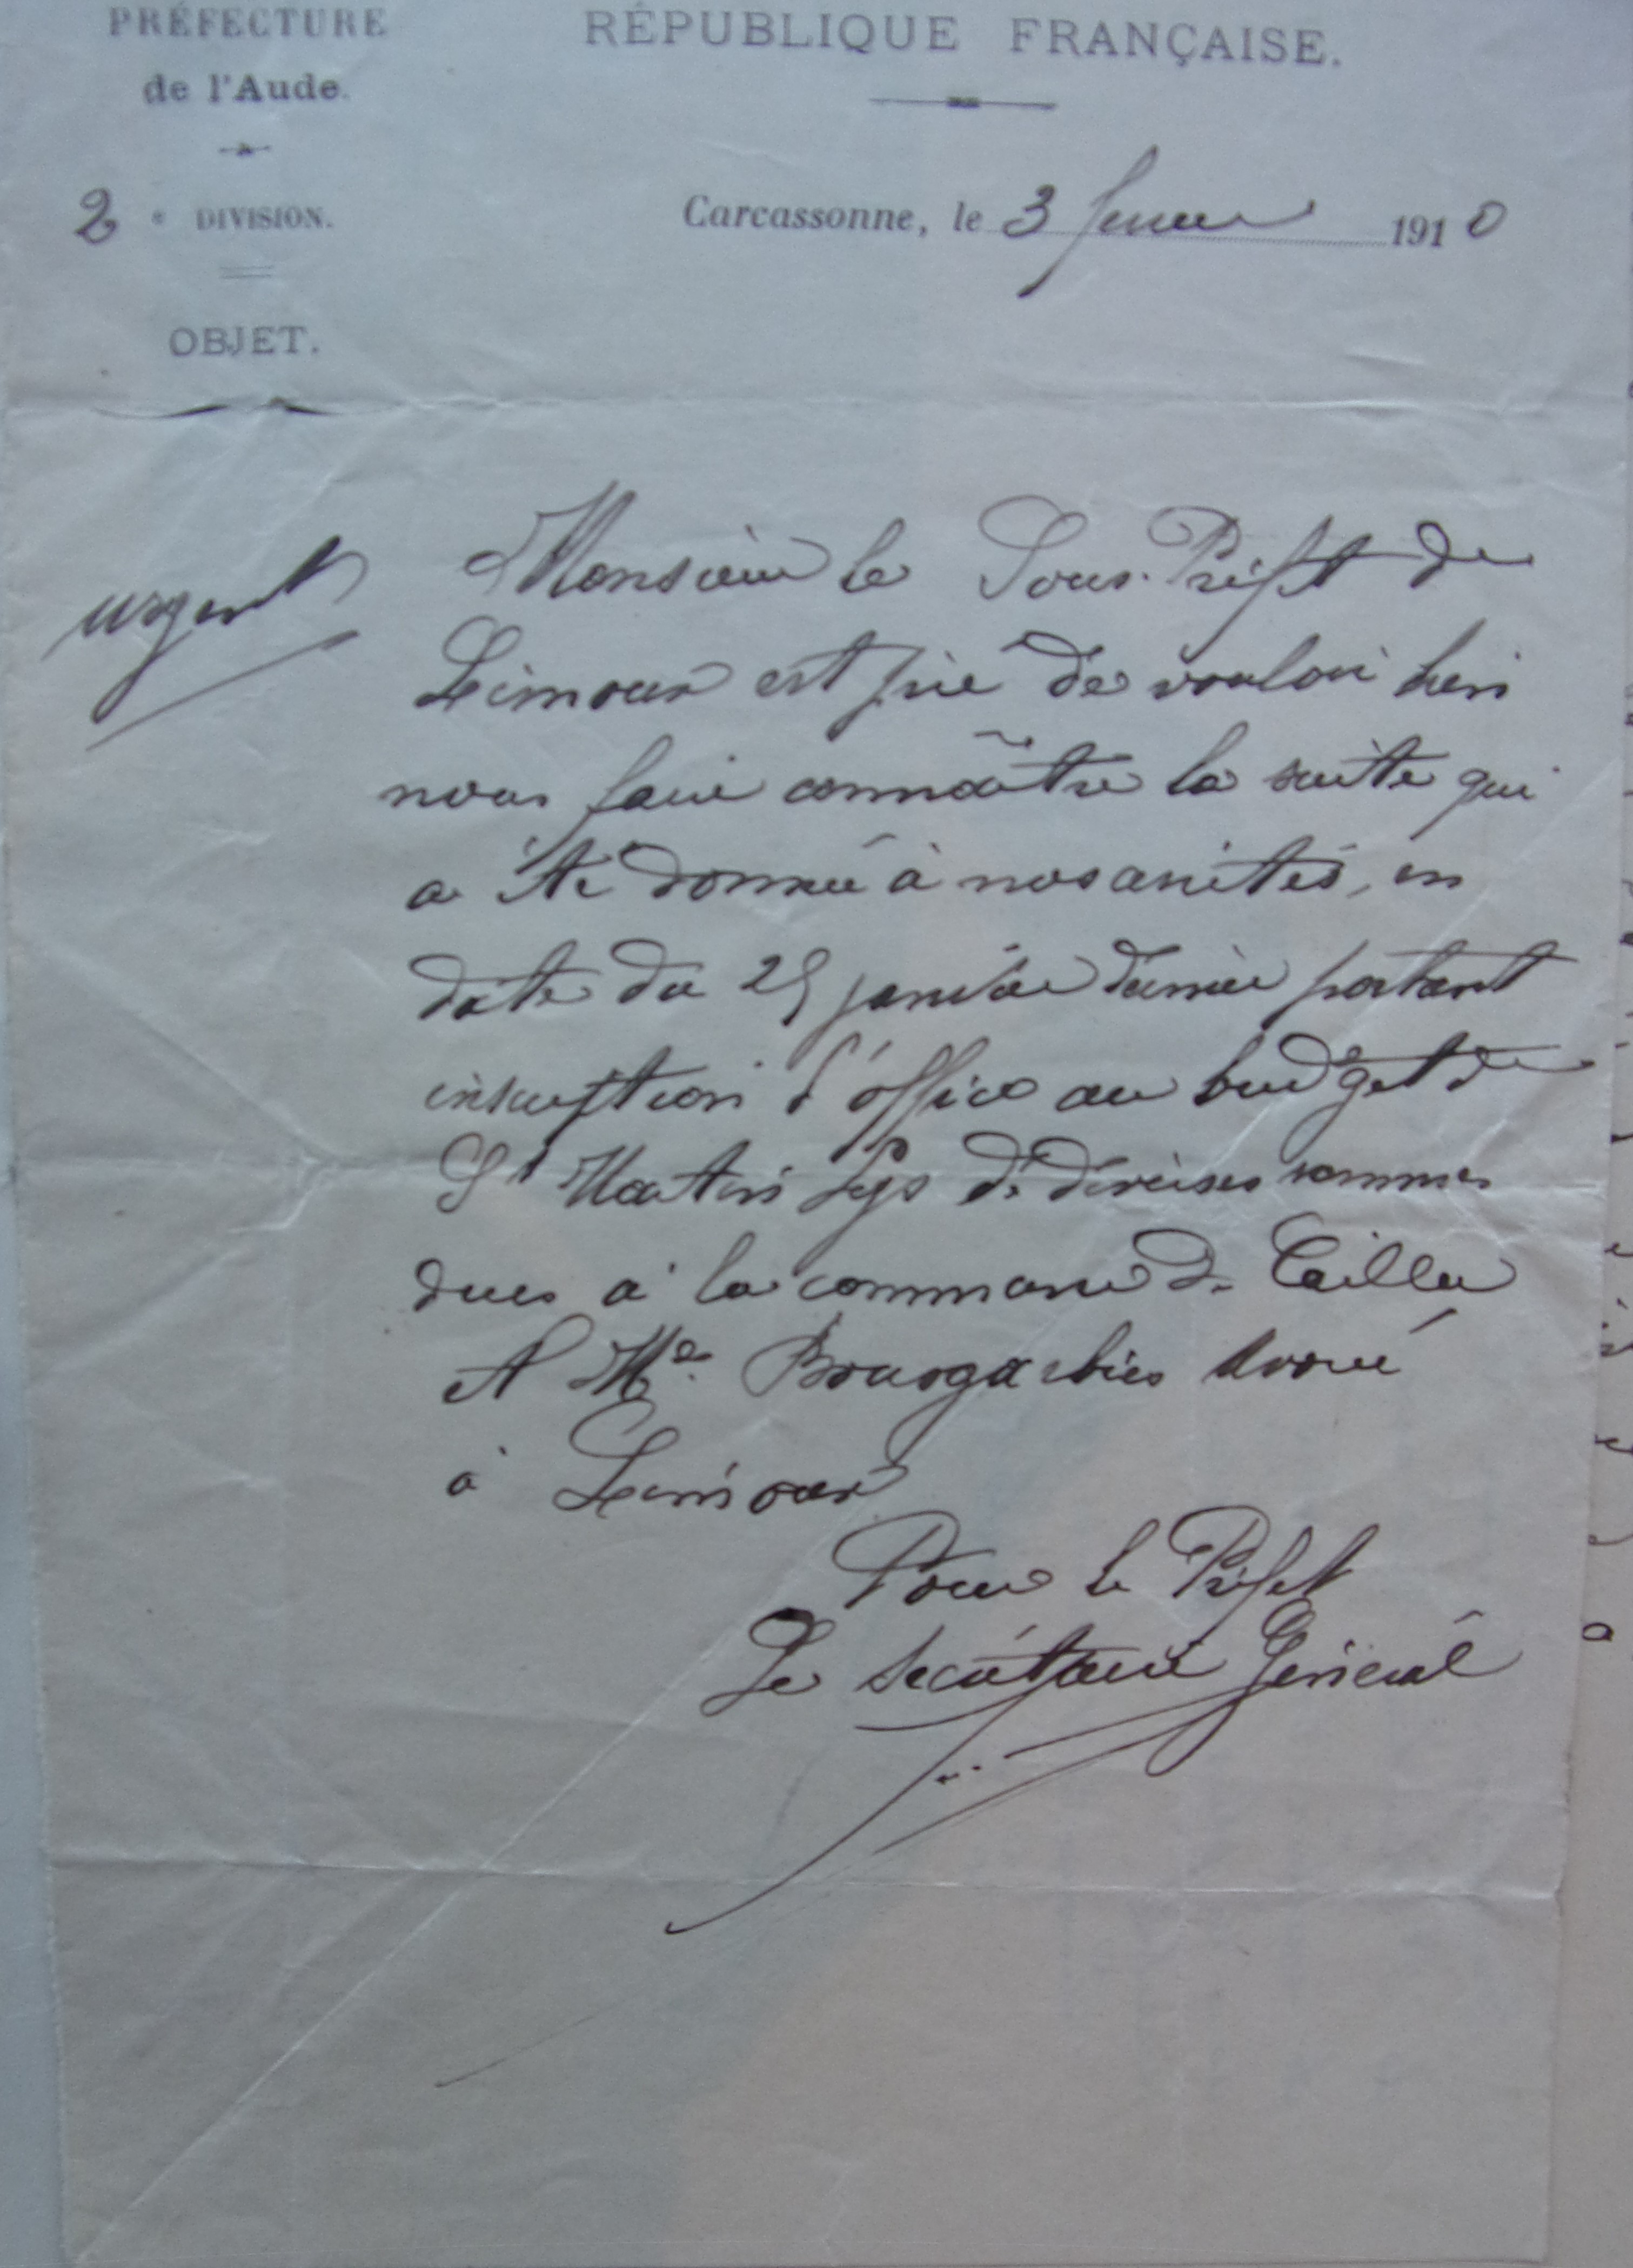 PRÉFECTURE
de l'Aude.
RÉPUBLIQUE FRANÇAISE.
2e DIVISION.
Carcassonne, le 3 février 1910
OBJET.
urgent
Monsieur le Sous-Préfet de
Limoux est prié de vouloir bien
nous faire connaître la suite qui
a été donnée à nos arrêtés, en
date du 25 janvier dernier portant
inscription d'office au budget de
St Martin Lys de diverses sommes
dues à la commune de
et Me avoué
à Limoux
Pour le Préfet
Le Secrétaire Général